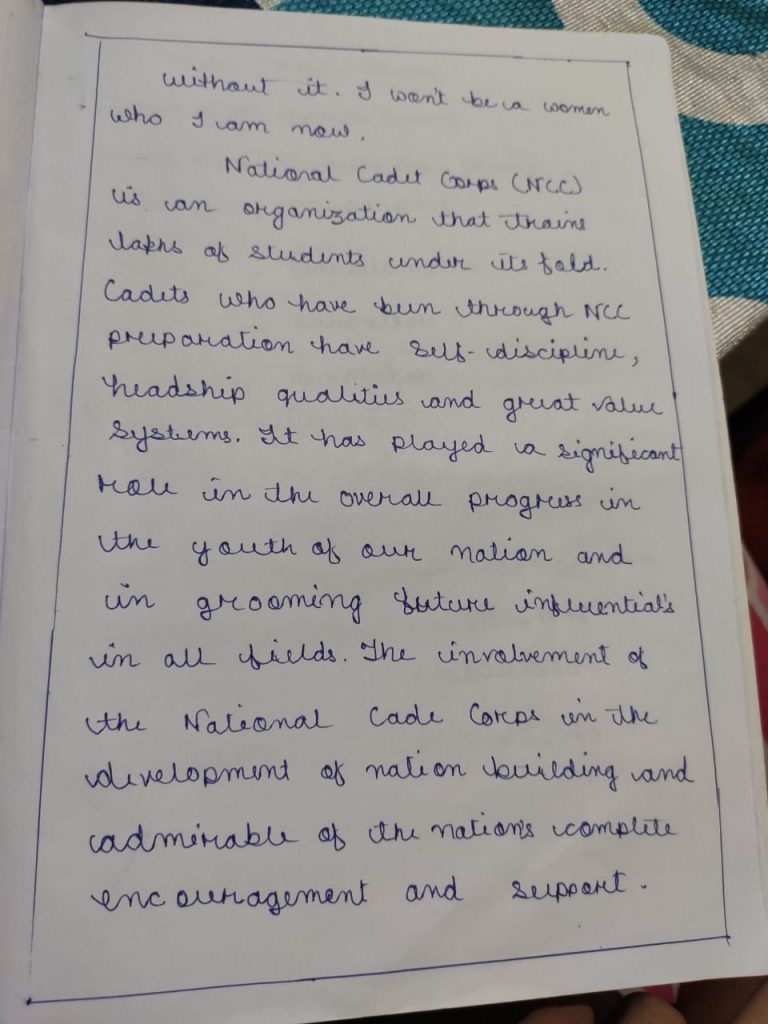 without it. I won't be a women
who I am now.
National Cadet Corps (NCC)
is an organization that trains
lakhs of students under its fold.
Cadets who have been through NCC
preparation have self-discipline,
headship qualities and great value
systems. It has played a significant
role in the overall progress in
the youth of our nation and
in grooming future influential's
in all fields. The involvement of
the National Cade Corps in the
development of nation building and
admirable of the nation's complete
encouragement and support.